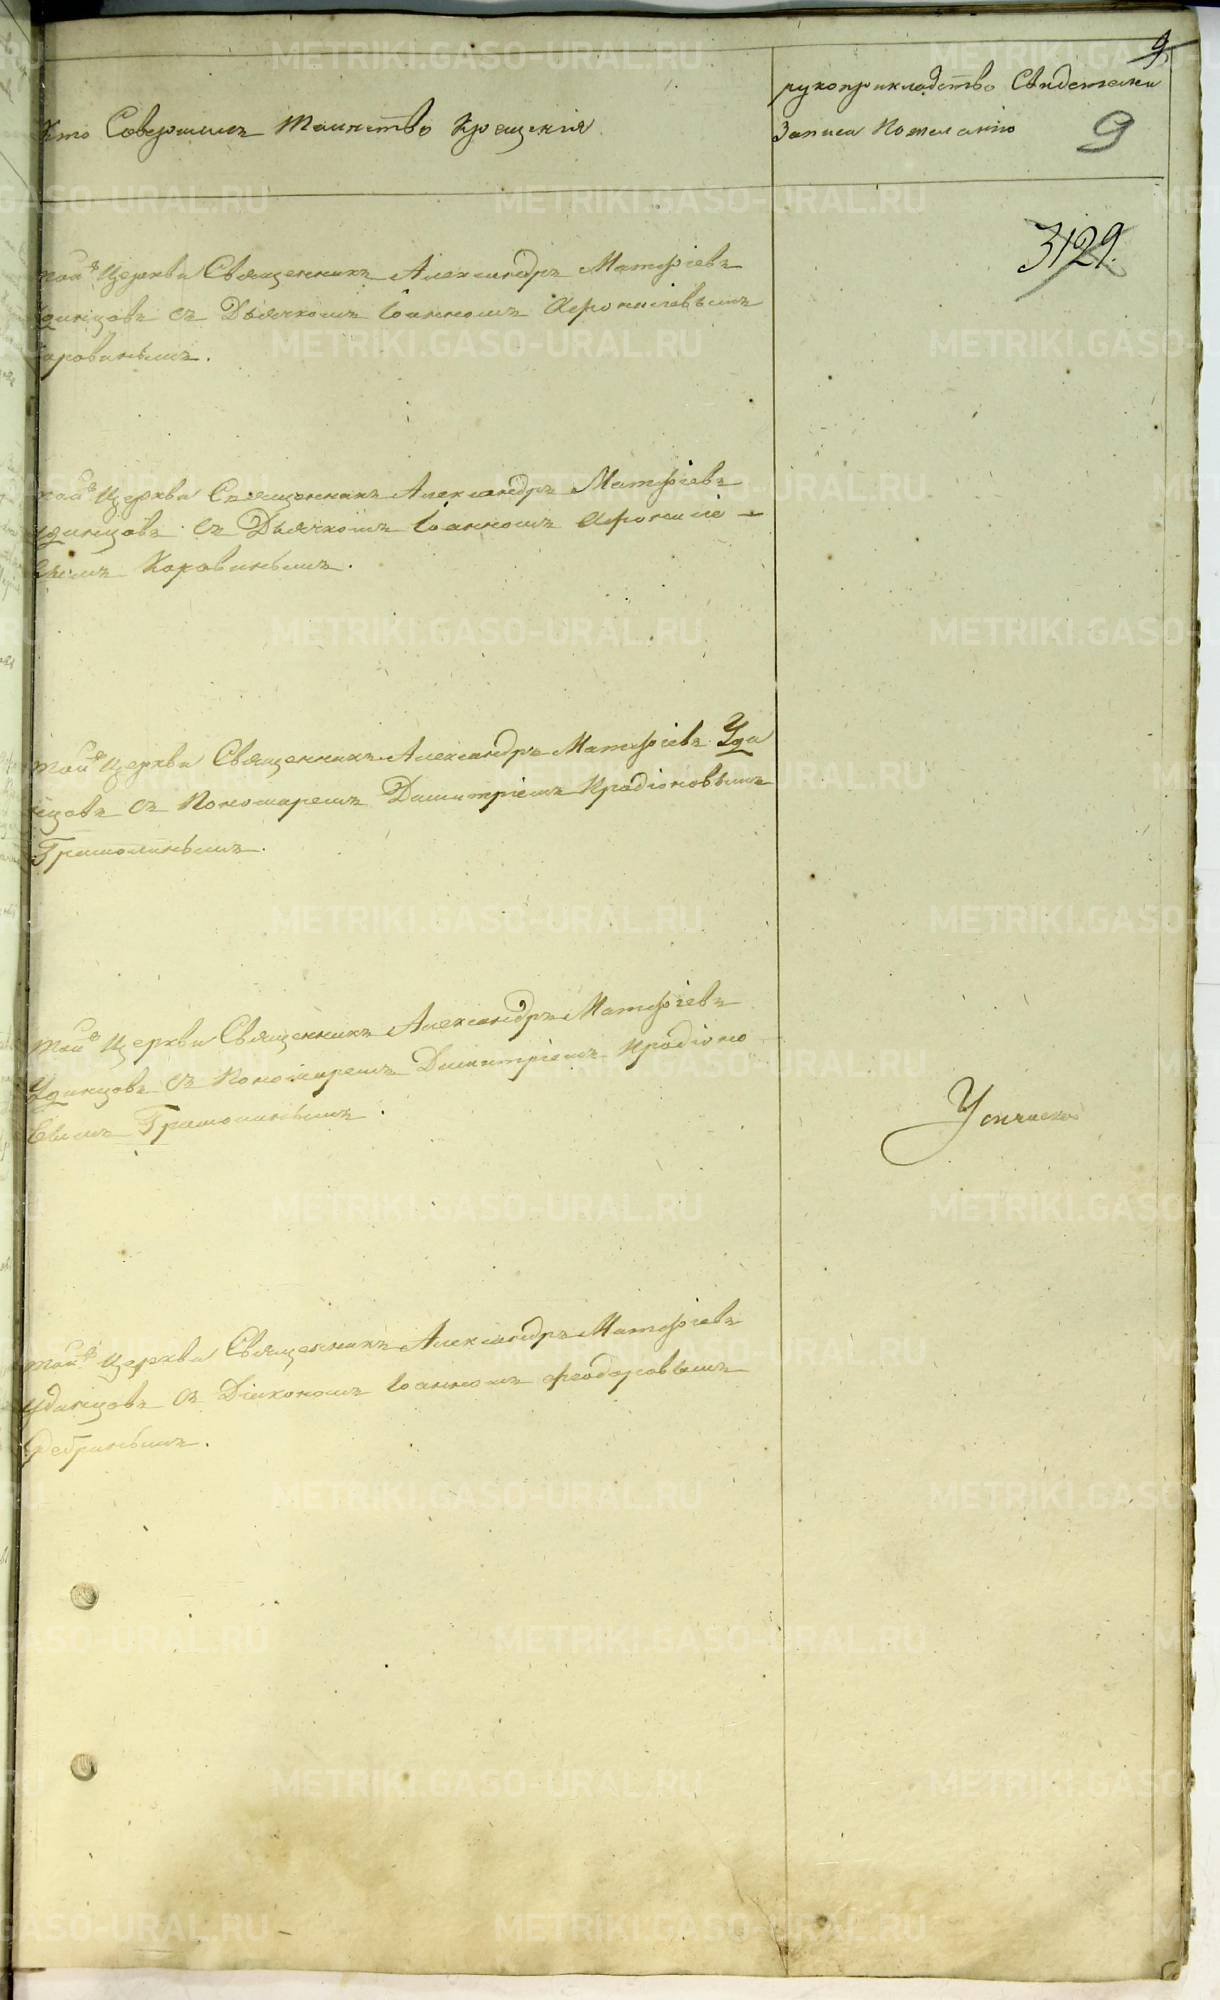 9
Кто Совершилъ таинство Крещенія
рукоприкладство Свидетелей
записи по желанію
9
3129.
той Церкви Священникъ Александръ Матфіевъ
Удинцовъ съ Дьячкомъ Іоанномъ
Коровинымъ.
той Церкви Священникъ Александръ Матфіевъ
Удинцовъ съ Дьячкомъ Іоанномъ
вымъ Коровинымъ.
той Церкви Священникъ Александръ Матфіевъ Уди
нцовъ съ Пономаремъ Димитріемъ Иродіоновымъ
Грамолинымъ.
той Церкви Священникъ Александръ Матфіевъ
Удинцовъ съ Пономаремъ Димитріемъ Иродіоно
вымъ Грамолинымъ.
той Церкви Священникъ Александръ Матфіевъ
Удинцовъ съ Діакономъ Іоанномъ Феодоровымъ
METRIKI.GASO-URAL.RU